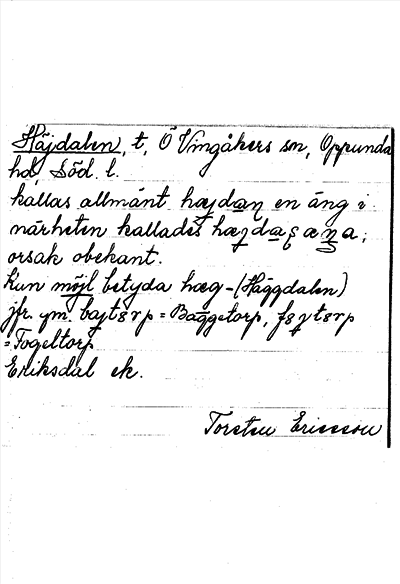 Häjdalen, t, Ö Vingåkers sn, Oppunda
hd, Söd. l.
kallas allmänt hæjdaņ en äng i
närheten kallades
orsak obekant.
Kun möjl betyda hæg-(Häggdalen)
jfr. ym. bajtɛrp = Baggetorp,
=Fogeltorp
Eriksdal ek.
Torsten Ericsson